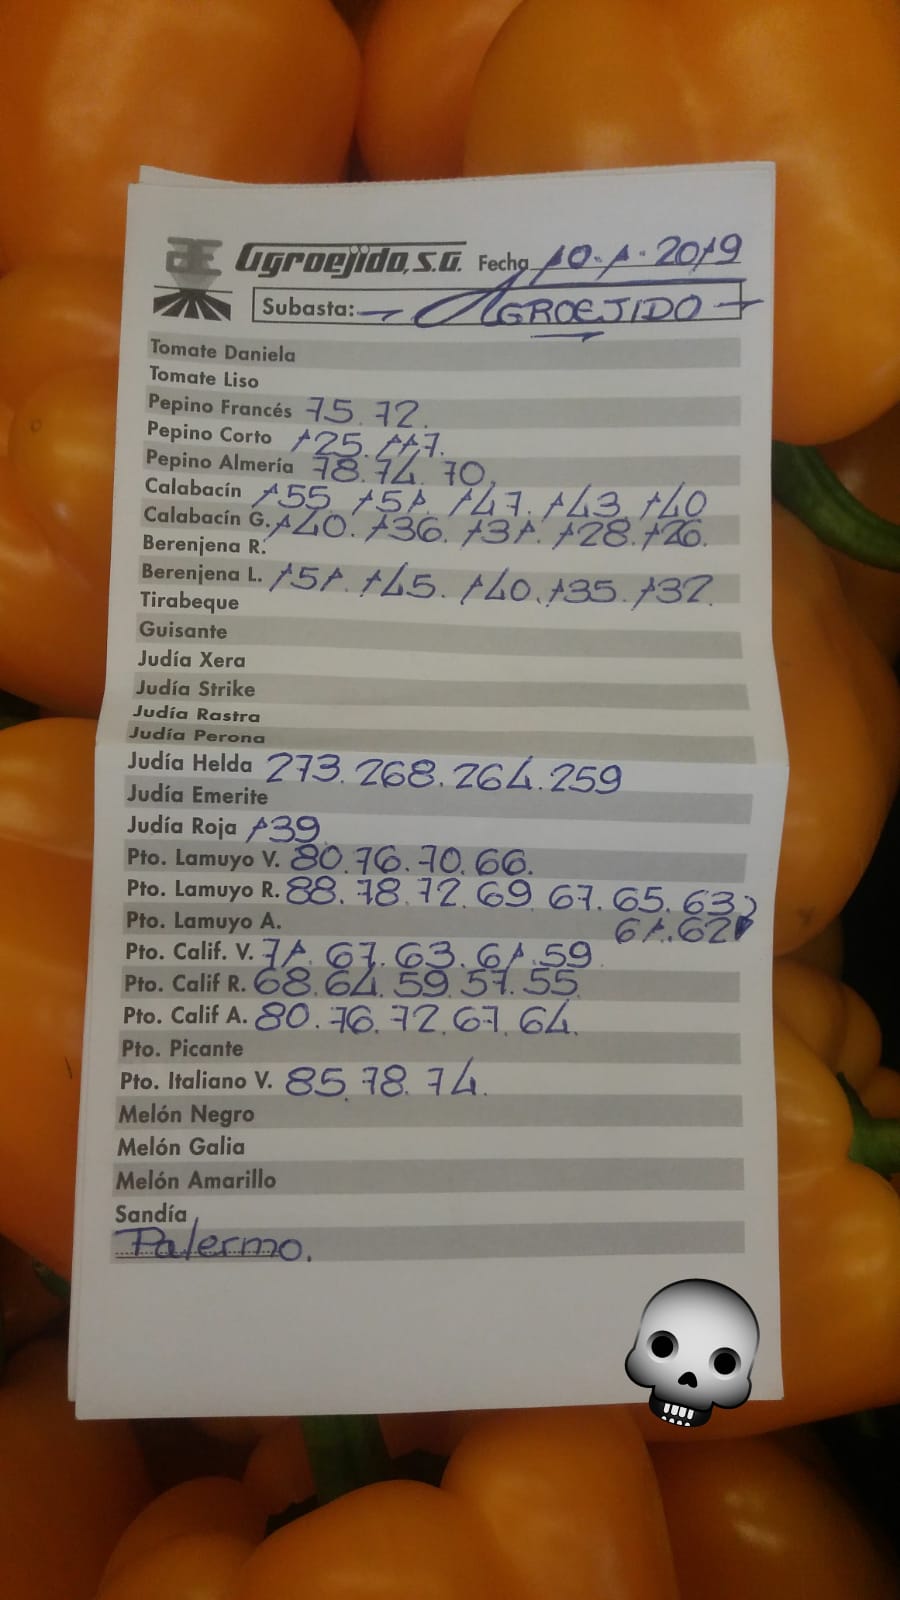 Agroejido, S.A. Fecha 10.1.2019
Subasta: AGROEJIDO
Tomate Daniela
Tomate Liso
Pepino Francés 75.72.
Pepino Corto 125.117.
Pepino Almería 78.74.70.
Calabacín 155.151.147.143.140
Calabacín G. 140.136.131.128.126.
Berenjena R.
Berenjena L. 151.145.140.135.132.
Tirabeque
Guisante
Judía Xera
Judía Strike
Judía Rastra
Judía Perona
Judía Helda 273.268.264.259
Judía Emerite
Judía Roja 139
Pto. Lamuyo V. 80.76.70.66.
Pto. Lamuyo R. 88.78.72.69.67.65.63
61.62
Pto. Lamuyo A.
Pto. Calif. V. 71.67.63.61.59
Pto. Calif R. 68.64.59.57.55
Pto. Calif A. 80.76.72.67.64.
Pto. Picante
Pto. Italiano V. 85.78.74.
Melón Negro
Melón Galia
Melón Amarillo
Sandía
Palermo.